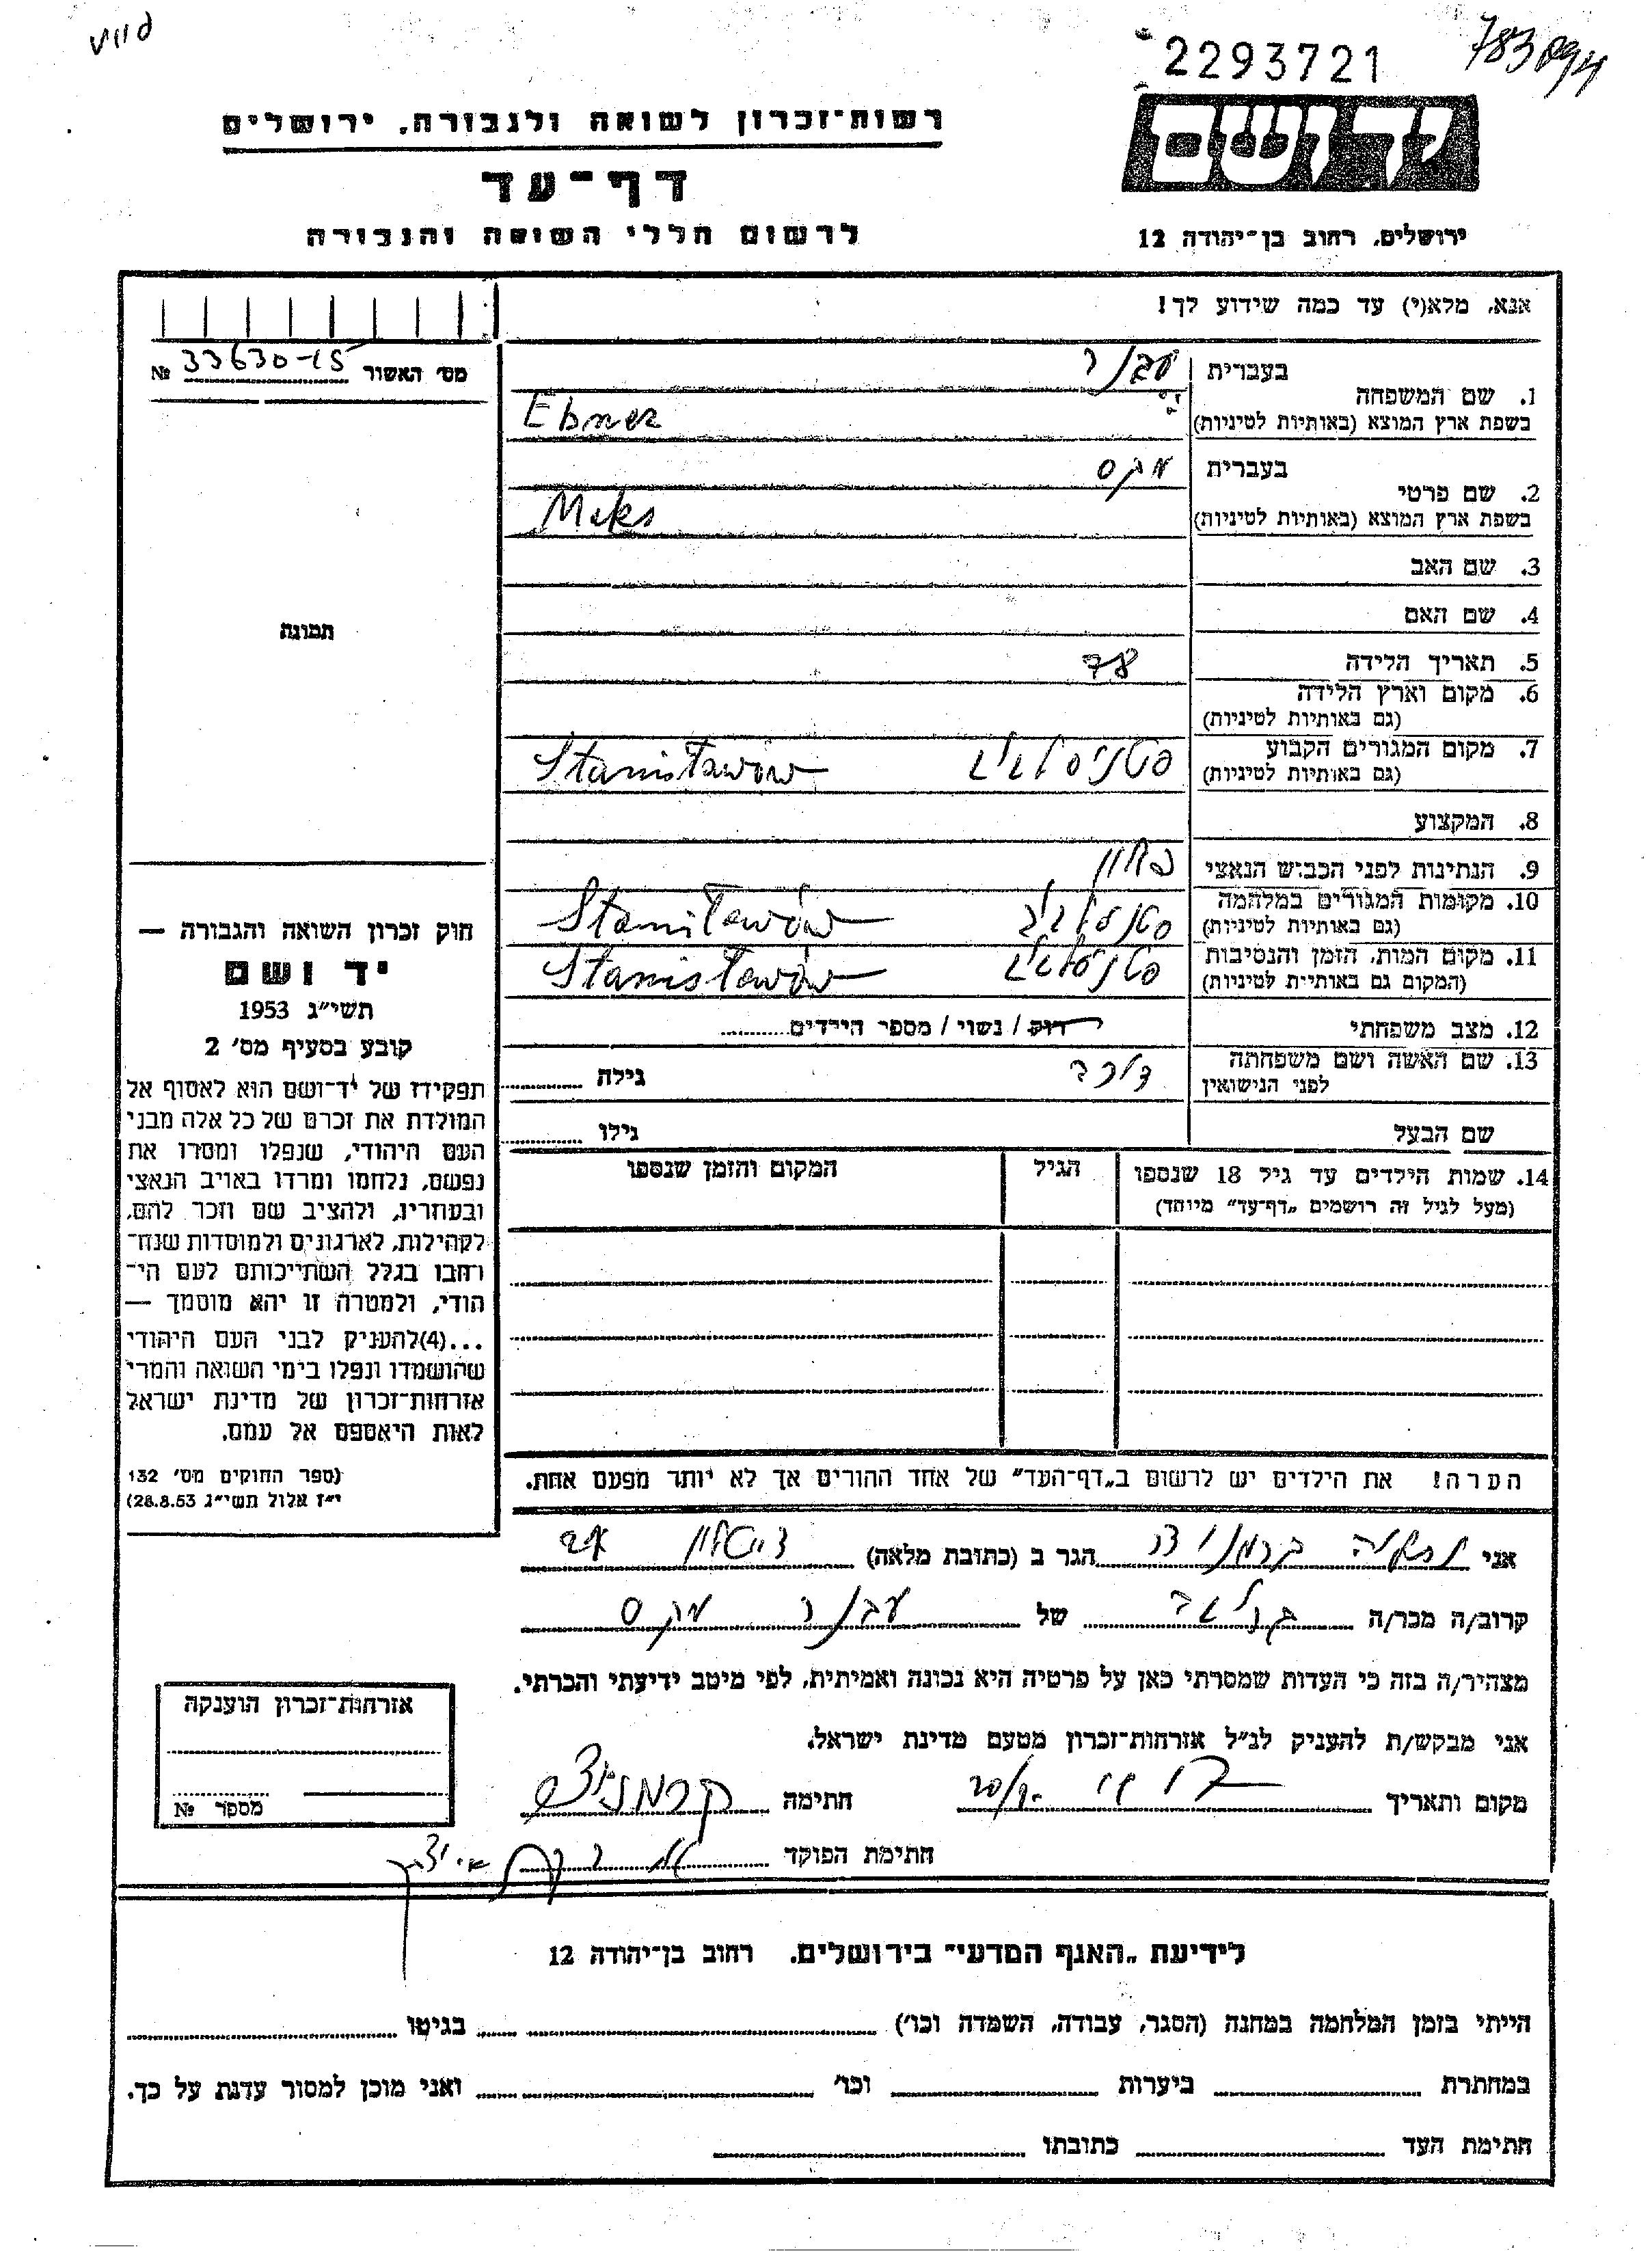 2293721
783094
רשות־זכרון לשואה ולגבורה, ירושלים
יד ושם
דף־עד
לרשום חללי השואה והגבורה
ירושלים, רחוב בן־יהודה 12
אנא, מלא(י) עד כמה שידוע לך!
מס׳ האשור 33630-15 №
1. שם המשפחה בעברית עבנר
בשפת ארץ המוצא (באותיות לטיניות) Ebner
2. שם פרטי בעברית מקס
בשפת ארץ המוצא (באותיות לטיניות) Meks
3. שם האב
4. שם האם
תמונה
5. תאריך הלידה 78
6. מקום וארץ הלידה
(גם באותיות לטיניות)
7. מקום המגורים הקבוע סטניסלביב Stanisławów
(גם באותיות לטיניות)
8. המקצוע
9. הנתינות לפני הכבוש הנאצי
10. מקומות המגורים במלחמה Stanisławów
(גם באותיות לטיניות)
11. מקום המות, הזמן והנסיבות Stanisławów
(המקום גם באותיות לטיניות)
12. מצב משפחתי רווק / נשוי / מספר הילדים
13. שם האשה ושם משפחתה
לפני הנישואין
גילה
שם הבעל
גילו
14. שמות הילדים עד גיל 18 שנספו הגיל המקום והזמן שנספו
(מעל לגיל זה רושמים „דף־עד” מיוחד)
חוק זכרון השואה והגבורה —
יד ושם
תשי״ג 1953
קובע בסעיף מס׳ 2
תפקידו של יד־ושם הוא לאסוף אל
המולדת את זכרם של כל אלה מבני
העם היהודי, שנפלו ומסרו את
נפשם, נלחמו ומרדו באויב הנאצי
ובעוזריו, ולהציב שם וזכר להם,
לקהילות, לארגונים ולמוסדות שנח־
רבו בגלל השתייכותם לעם הי־
הודי, ולמטרה זו יהא מוסמך —
...(4)להעניק לבני העם היהודי
שהושמדו ונפלו בימי השואה והמרי
אזרחות־זכרון של מדינת ישראל
לאות היאספם אל עמם.
(ספר החוקים מס׳ 132
י״ז אלול תשי״ג 28.8.53)
הערה! את הילדים יש לרשום ב„דף־העד” של אחד ההורים אך לא יותר מפעם אחת.
אני הגר ב (כתובת מלאה)
קרוב/ה מכר/ה של עבנר מקס
מצהיר/ה בזה כי העדות שמסרתי כאן על פרטיה היא נכונה ואמיתית, לפי מיטב ידיעתי והכרתי.
אני מבקש/ת להעניק לנ״ל אזרחות־זכרון מטעם מדינת ישראל.
מקום ותאריך חתימה
חתימת הפוקד
אזרחות־זכרון הוענקה
מספר №
לידיעת „האגף המדעי” בירושלים, רחוב בן־יהודה 12
הייתי בזמן המלחמה במחנה (הסגר, עבודה, השמדה וכו׳) בגיטו
במחתרת ביערות וכו׳ ואני מוכן למסור עדות על כך.
חתימת העד כתובתו